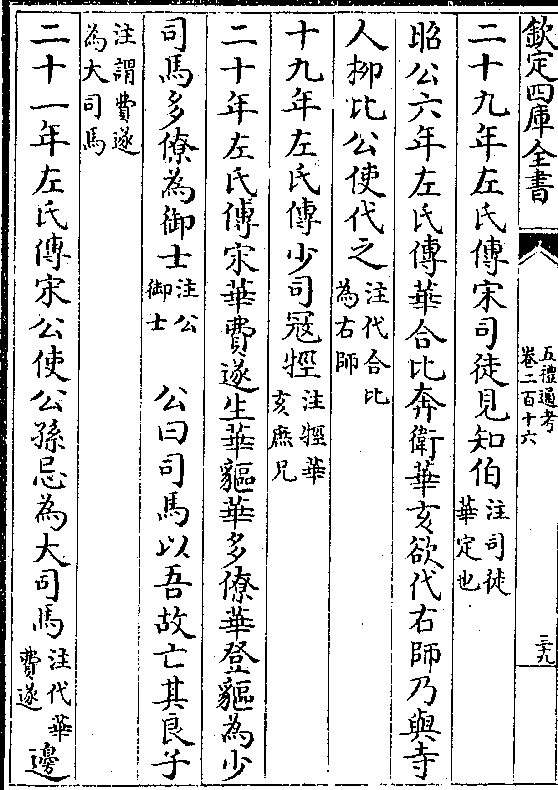 欽定四庫全書
五禮通考
卷二百十六
三十九
二十九年左氏傳宋司徒見知伯注司徒
華定也
昭公六年左氏傳華合比奔衛華亥欲代右師乃與寺
人柳比公使代之注代合比
為右師
十九年左氏傳少司寇牼注牼華
亥庶兄
二十年左氏傳宋華費遂生華貙華多僚華登貙為少
司馬多僚為御士注公
御士
公曰司馬以吾故亡其良子
注謂費遂
為大司馬
二十一年左氏傳宋公使公孫忌為大司馬注代華
費遂
邊